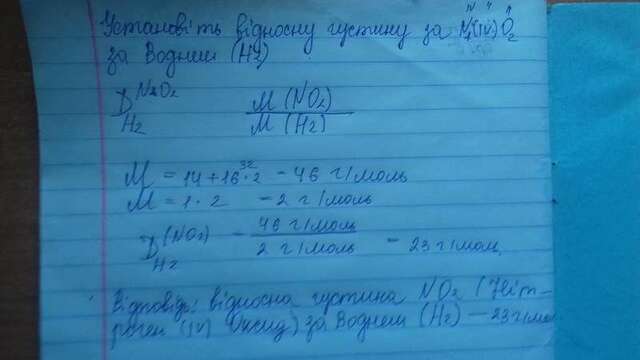 Установіть відносну густину за N(IV)O2
за Воднем (H2)
D N2O2 M (NO2)
H2 M (H2)
32
M = 14 + 16 · 2 - 46 г/моль
M = 1 · 2 - 2 г/моль
D (NO2) - 46 г/моль
H2 2 г/моль - 23 г/моль
Відповідь: відносна густина NO2 (Ніт-
роген (IV) Оксид) за Воднем (H2) - 23 г/мо